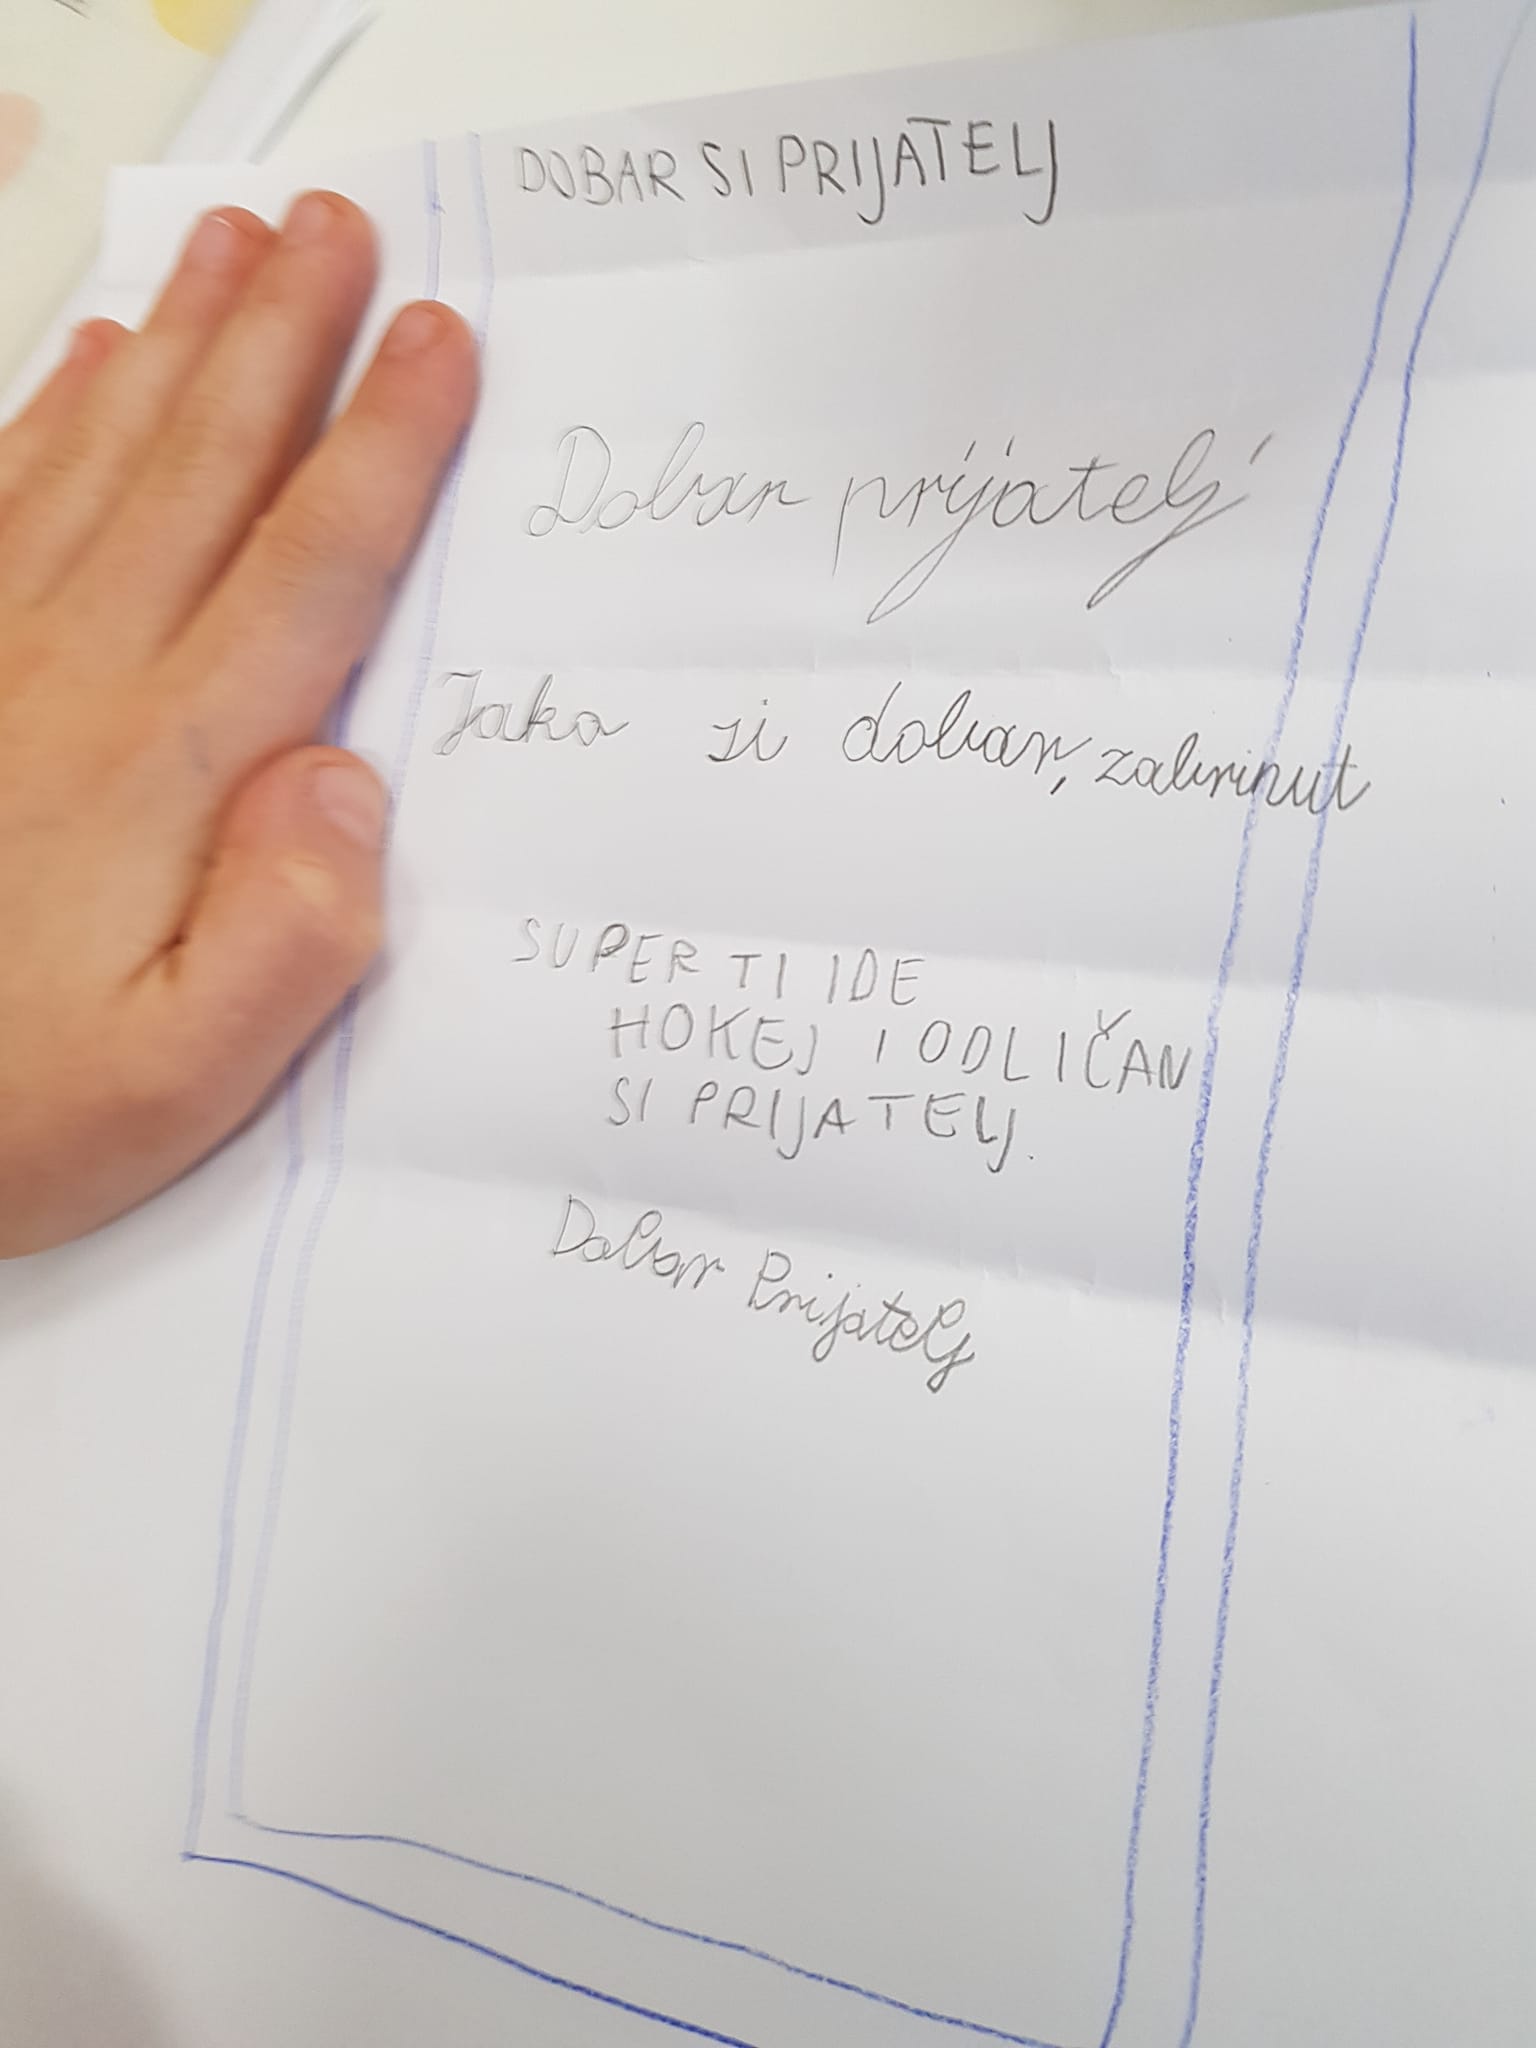 DOBAR SI PRIJATELJ
Dobar prijatelj
Jako si dobar, zabrinut
SUPER TI IDE
HOKEJ I ODLIČAN
SI PRIJATELJ.
Dobar Prijatelj